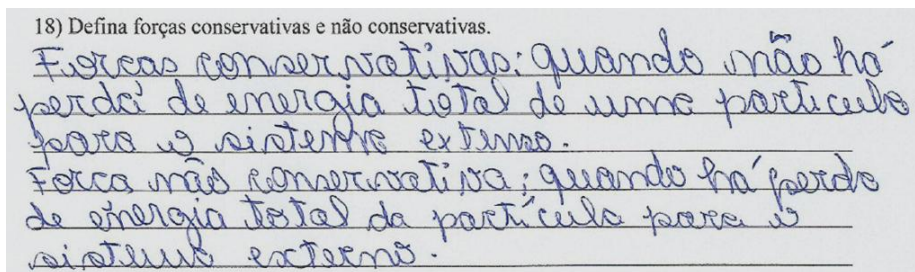 18) Defina forças conservativas e não conservativas.
Forcas conservativas: quando não há
perda de energia total de uma particula
para o sistema externo.
Forca não conservativa: quando há perda
de energia total da partícula para o
sistema externo.